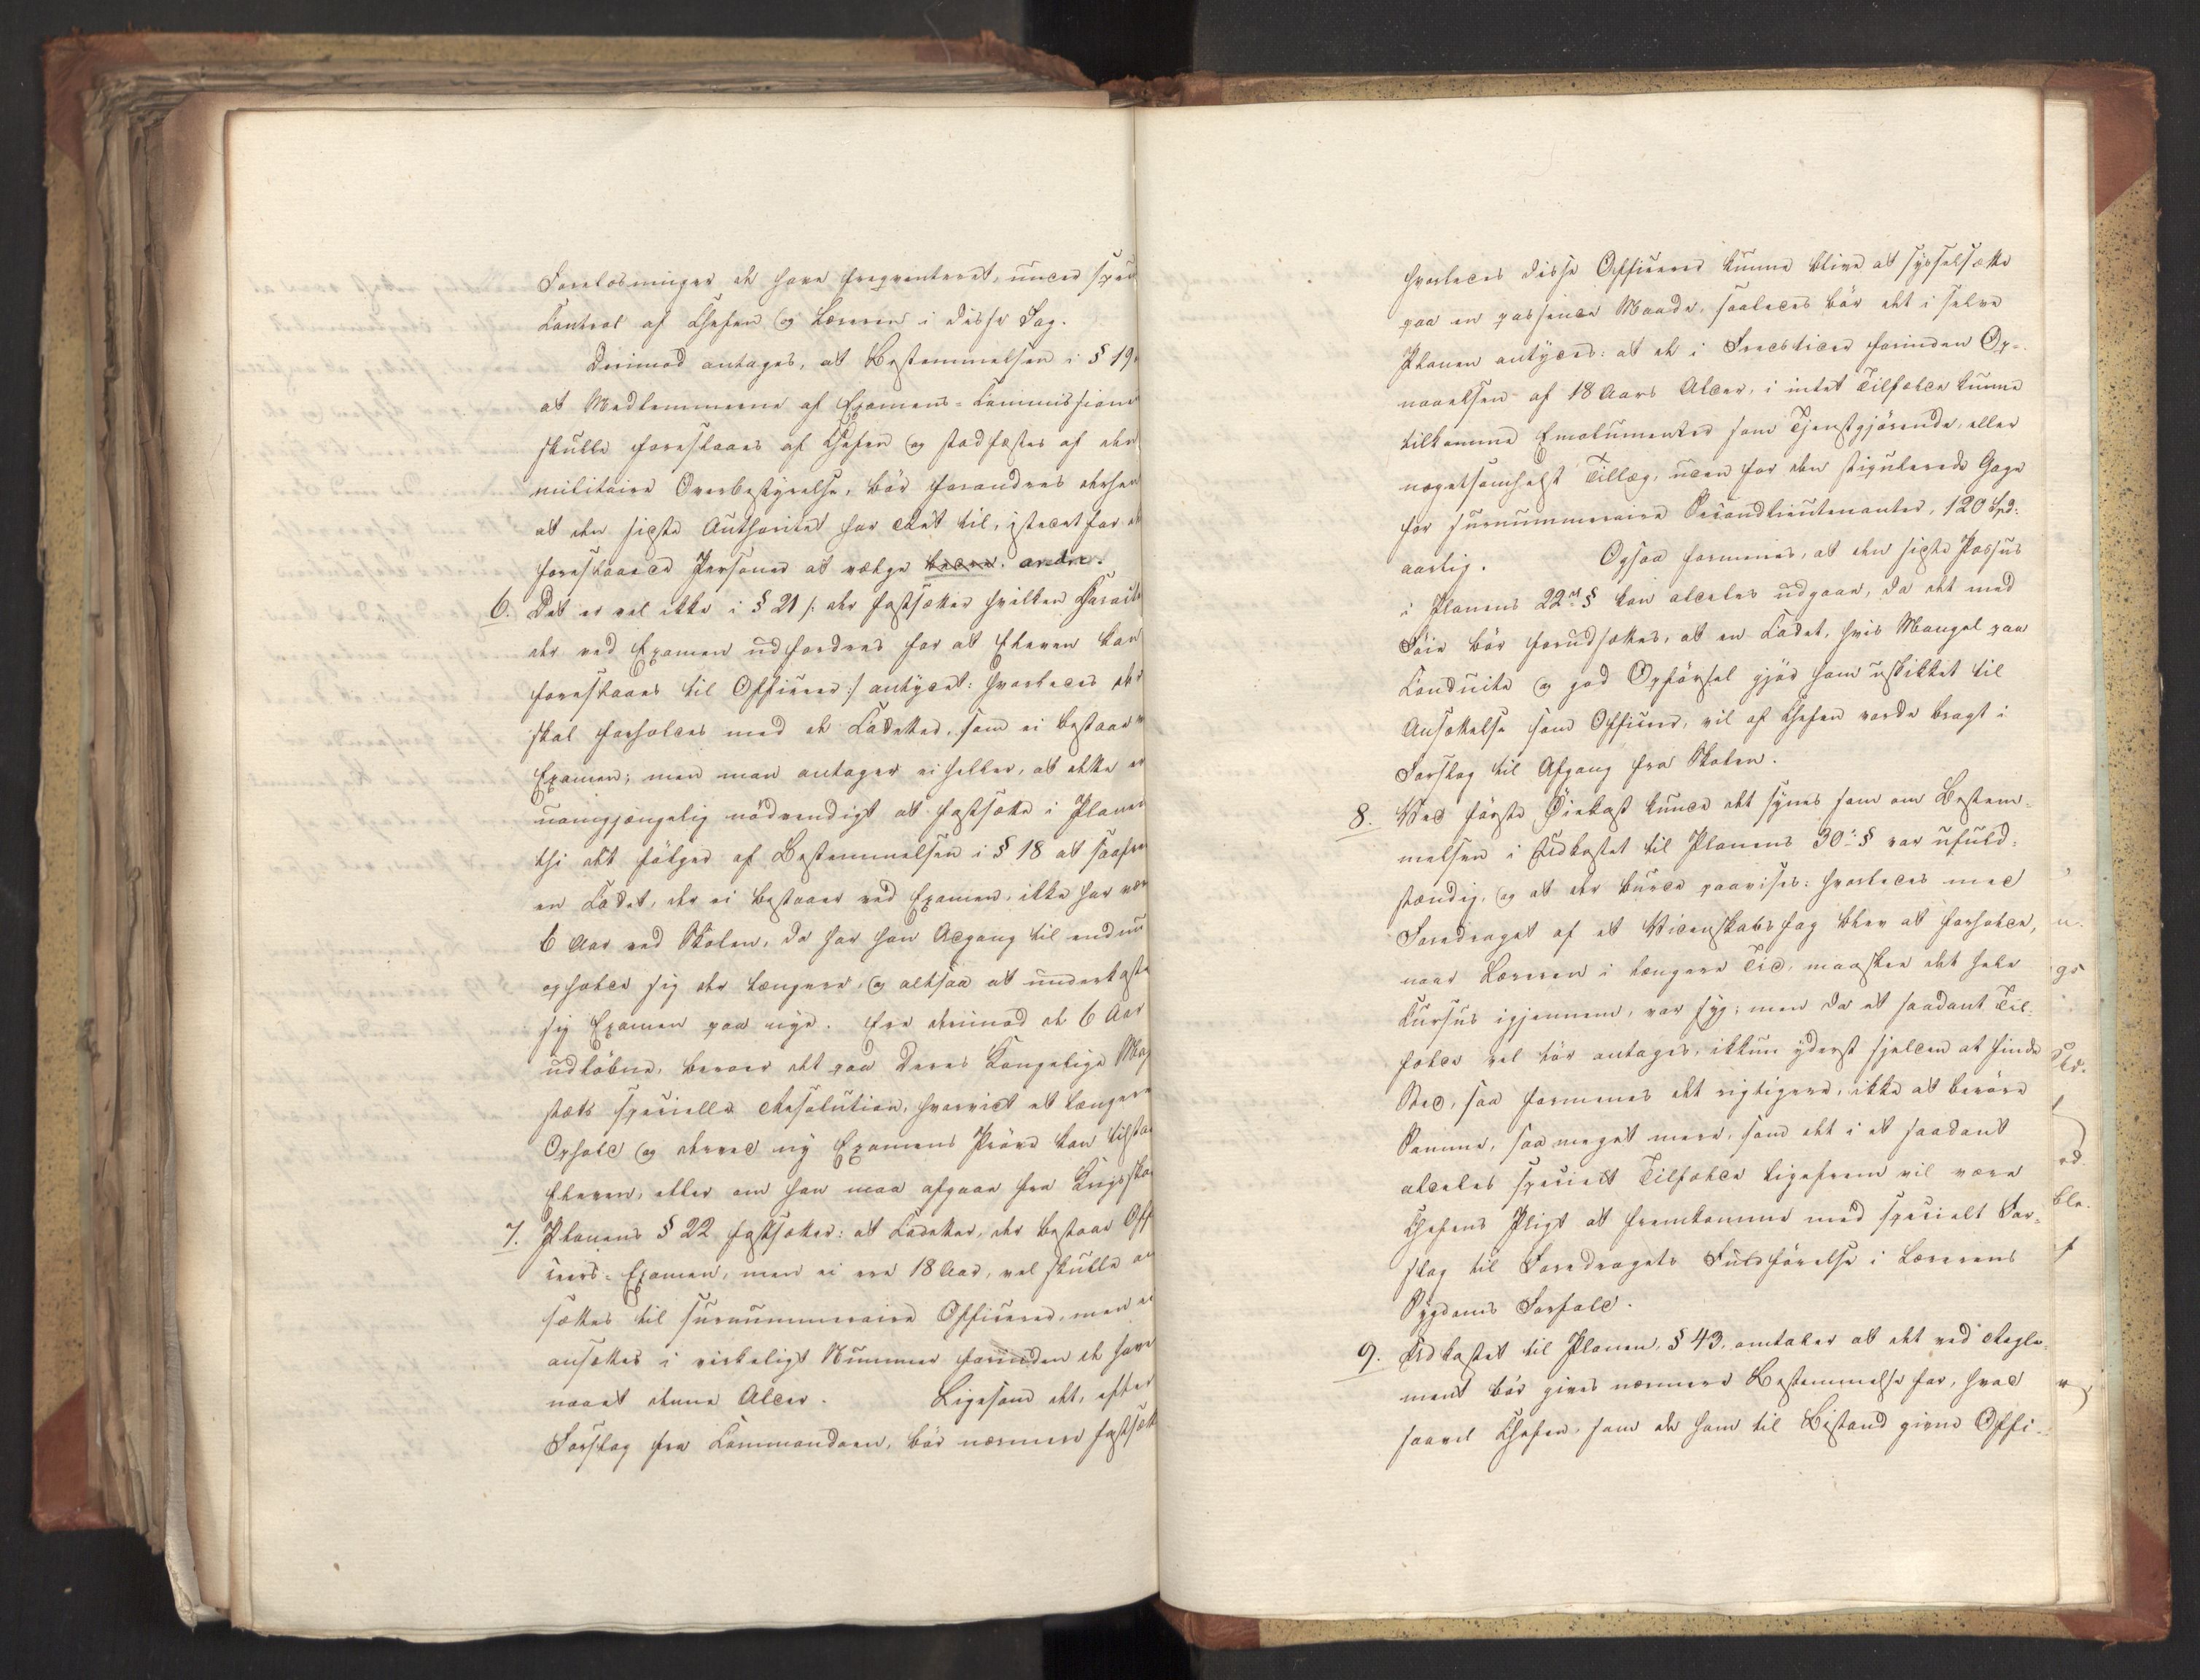 Forelæsninger de have freqventeret, under spec
Control af Chefen og Læreren i disse Fag.
Derimod antages, at Bestemmelsen i § 19
at Medlemmerne af Examens-Commissione
skulle foreslaaes af Chefen og stadfæstes af den
militaire Overbestyrelse, bör forandres derhen
at den sidste Authoritet har Ret til, istedet for de
foreslaaede Personer at vælge andre.
6. Det er vel ikke i § 21 /: der fastsætter hvilken Charact
der ved Examen udfordres for at Eleven kan
foreslaaes til Officeer :/ antydet: hvorledes det
skal forholdes med de Cadetter, som ei bestaae
Examen; men man antager ei heller, at dette er
uomgjængelig nödvendigt at fastsætte i Planen
thi det fölger af Bestemmelsen i § 18 at saafre
en Cadet, der ei bestaaer ved Examen, ikke har vær
6 Aar ved Skolen, da har han Adgang til endnu
opholde sig der længere, og altsaa at underkaste
sig Examen paa nye. Ere derimod de 6 Aar
udlöbne, beroer det paa Deres Kongelige Maj
stæts specielle Resolution, hvorvidt et længere
Ophold og derved ny Examens Pröve kan tilstaa
Eleven, eller om han maa afgaae fra Krigsskol
7. Planens § 22 fastsætter: at Cadetter, der bestaae Off
ceers-Examen, men ei ere 18 Aar, vel skulle an
sættes til surnummeraire Officerer, men ei
ansættes i virkeligt Nummer forinden de have
naaet denne Alder. Ligesom det, efter
Forslag fra Commandoen, bör nærmere fastsætt
hvorledes disse Officerer kunne blive at sysselsætte
paa en passende Maade, saaledes bör det i selve
Planen antydes: at de i Fredstider forinden Op-
naaelsen af 18 Aars Alder, i intet Tilfælde kunne
tilkomme Emolumenter som Tjenstgjörende, eller
nogetsomhelst Tillæg, uden for den stipulerede Gage
for surnummeraire Secondlieutenanter, 120 Spd:
aarlig. Ogsaa formenes, at den sidste Passus
i Planens 22de § kan aldeles udgaae, da det med
Föie bör forudsættes, at en Cadet, hvis Mangel paa
Conduite og god Opförsel gjör ham uskikket til
Ansættelse som Officeer, vil af Chefen vorde bragt i
Forslag til Afgang fra Skolen.
8. Ved förste Öiekast kunde det synes som om Bestem-
melsen i Udkastet til Planens 30te § var ufuld-
stændig, og at der burde paavises: hvorledes med
Foredraget af et Videnskabsfag blev at forholde,
naar Læreren i længere Tid, maaskee det hele
Cursus igjennem, var syg; men da et saadant Til-
fælde vel tör antages, ikkun yderst sjelden at finde
Sted, saa formenes det rigtigere, ikke at beröre
Samme, saa meget mere, som det i et saadant
aldeles specielt Tilfælde ligefrem vil være
Chefens Pligt at fremkomme med specielt For-
slag til Foredragets Fuldförelse i Lærerens
Sygdoms Forfald.
9. Udkastet til Planen, § 43, omtaler at det ved Regle-
ment bör gives nærmere Bestemmelse for, hvad
saavel Chefen, som de ham til Bistand givne Offi-